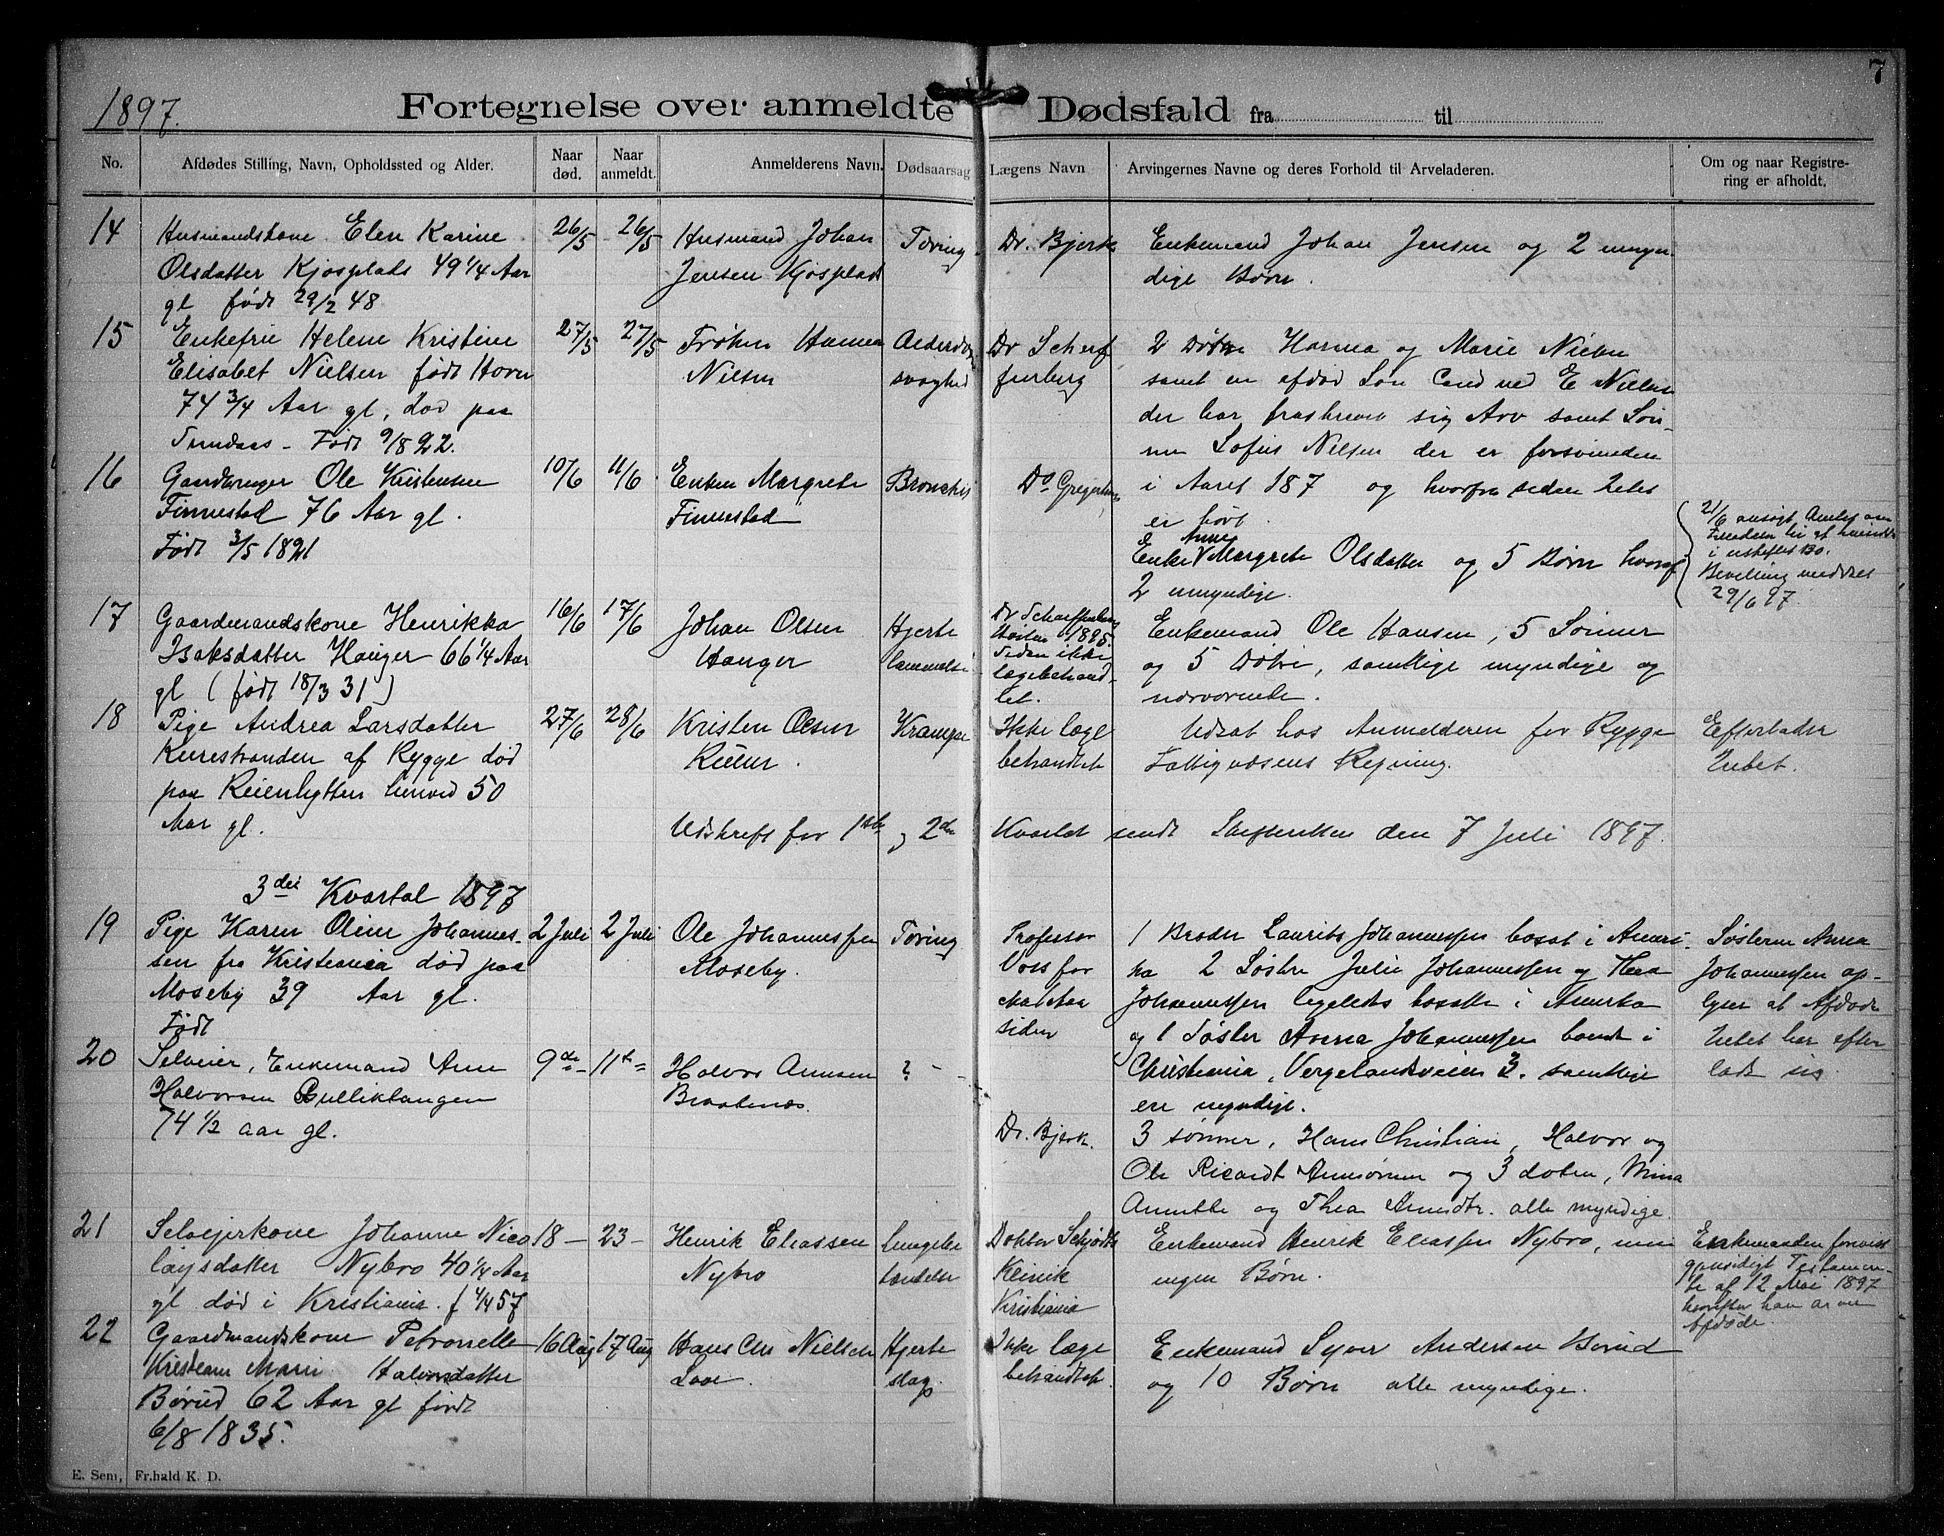 7
1897. Fortegnelse over anmeldte Dødsfald fra til
No. Afdødes Stilling, Navn, Opholdssted og Alder. Naar død. Naar anmeldt. Anmelderens Navn. Dødsaarsag Lægens Navn Arvingernes Navne og deres Forhold til Arveladeren. Om og naar Registrering er afholdt.
14 Husmandskone Elen Karine 26/5 26/5 Husmand Johan Tæring Dr. Bjerk Enkemand Johan Jensen og 2 umyn-
Olsdatter Kjosplads 49 1/4 Aar Jensen Kjosplads dige Børn.
gl født 29/2 48
15 Enkefru Helene Kristine 27/5 27/5 Frøken Hanna Alderdoms Dr Scharf 2 Døtre Hanna og Marie Nielsen
Elisabet Nielsen født Horn Nielsen svaghed fenberg samt en afdød Søn Cand med E Nielsen
74 3/4 Aar gl, død paa der har fraskrevet sig Arv samt Søn-
Født 9/8 22. nen Sofus Nielsen der er forsvunden
16 Gaardbruger Ole Kristensen 10/6 11/6 Enken Margrete Bronchit Dr Gregersen i Aaret 187 og hvorfra siden Intet
Finnestad 76 Aar gl. Finnestad er hørt.
Født 3/5 1821 Enke Anne Margrete Olsdatter og 5 Børn hvoraf
2 umyndige.
21/6 ansøgt Amtet om
Tilladelse til at hensidde
i uskiftet Bo.
Bevilling meddelt
29/6 97.
17 Gaardmandskone Henrikka 16/6 17/6 Johan Olsen Hjerte Dr Scharffenberg Enkemand Ole Hansen, 5 Sønner
Isaksdatter Hauger 66 1/4 Aar Hauger lammelse Høsten 1895. og 5 Døtre, samtlige myndige og
gl (født 18/3 31) Siden ikke lægebehand- nærværende.
let.
18 Pige Andrea Larsdatter 27/6 28/6 Kristen Olsen Krampe Ikke læge Udsat hos Anmelderen for Rygge Efterlader
Kurestranden af Rygge død Reier. behandlet Fattigvæsens Regning. Intet.
paa Reienhytten henved 50
Aar gl. Udskrift for 1ste og 2den Kvartal sendt Skifteretten den 7 Juli 1897.
3die Kvartal 1897
19 Pige Karen Oline Johannes- 2 Juli 2 Juli Ole Johannessen Tæring Professor 1 Broder Laurits Johannessen bosat i Ameri- Søsteren Anna
sen fra Kristiania død paa Moseby. Voss for ka 2 Søstre Julie Johannessen og Thea Johannessen op-
Moseby 39 Aar gl. Johannessen ligeledes bosatte i Amerika lyser at Afdøde
Født siden og 1 Søster Anna Johannessen boende i Intet har efter
20 Selveier, Enkemand Arne 9de 11te Halvor Arnesen ? Christiania, Vergelandsveien 3. samtlige ladt sig
Halvorsen Gulliklangen Braatenæs. ere myndige.
74 1/2 aar gl. Dr. Bjerk. 3 sønner, Hans Christian, Halvor og
Ole Ricardt Arnesønner og 3 døtre, Mina
og Thea Arnesdtr. alle myndige.
21 Selvejerkone Johanne Nico 18 — 23 — Henrik Eliassen Lunge Doktor Schjødts Enkemand Henrik Eliassen Nybro, men Enkemanden foreviste
laysdatter Nybro 40 1/4 Aar Nybro betændelse Klinik ingen Børn. gjensidigt Testamen-
gl død i Kristiania. f 4/4 57 Kristiania te af 12 Mai 1897
hvorefter han arver
Afdøde.
22 Gaardmandskone Petronelle 16 Aug 17 Aug Hans Chr Nielsen Hjerte Ikke læge Enkemand Syver Andersen Børud
Kristiane Marie Halvorsdatter slag. behandlet. og 10 Børn alle myndige.
Børud 62 Aar gl født
6/8 1835.
E. Sem, Fr.hald K. D.